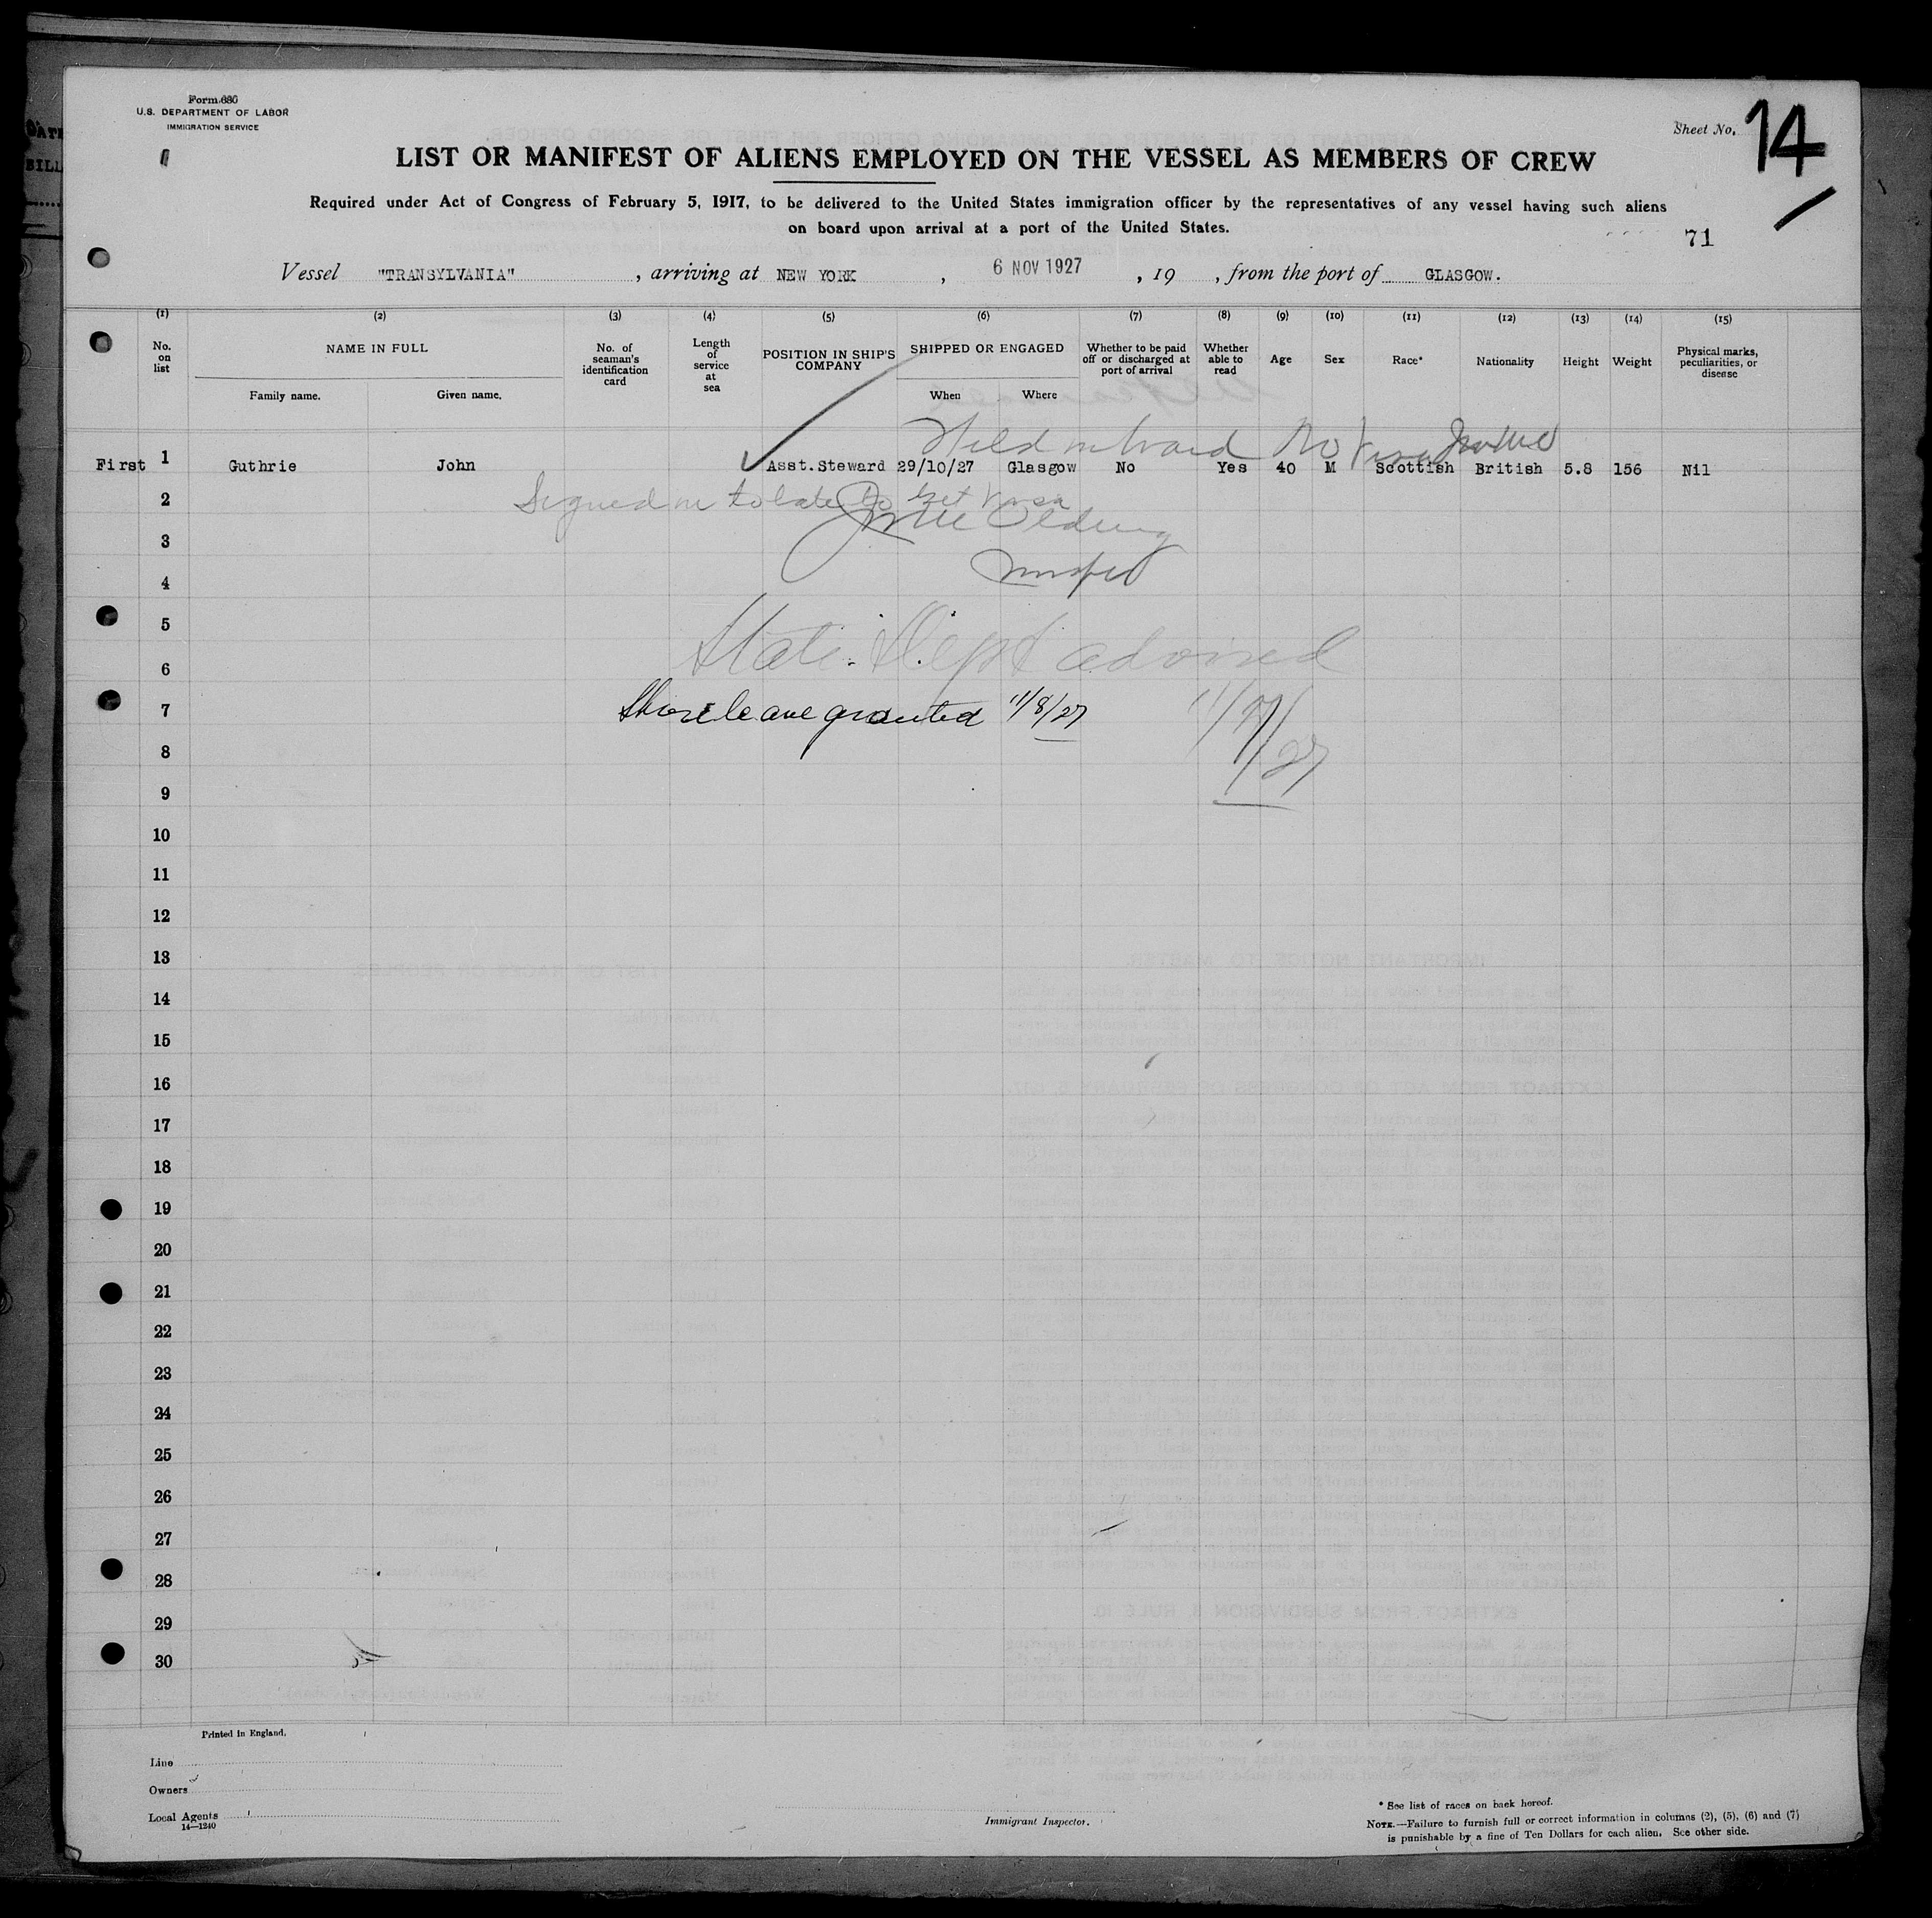 Form 680
U.S. DEPARTMENT OF LABOR
IMMIGRATION SERVICE
Sheet No. 14
LIST OR MANIFEST OF ALIENS EMPLOYED ON THE VESSEL AS MEMBERS OF CREW
Required under Act of Congress of February 5, 1917, to be delivered to the United States immigration officer by the representatives of any vessel having such aliens
on board upon arrival at a port of the United States.
71
Vessel "TRANSYLVANIA", arriving at NEW YORK, 6 NOV 1927, 19 , from the port of GLASGOW.
(1) (2) (3) (4) (5) (6) (7) (8) (9) (10) (11) (12) (13) (14) (15)
No. on list
NAME IN FULL
Family name. Given name.
No. of seaman's identification card
Length of service at sea
POSITION IN SHIP'S COMPANY
SHIPPED OR ENGAGED
When Where
Whether to be paid off or discharged at port of arrival
Whether able to read
Age
Sex
Race*
Nationality
Height
Weight
Physical marks, peculiarities, or disease
Held on board No Visa
First 1 Guthrie John Asst.Steward 29/10/27 Glasgow No Yes 40 M Scottish British 5.8 156 Nil
2 Signed on to late to get Visa
3
4
5
6 State Dept advised
7 Shore leave granted 11/8/27
8
9
10
11
12
13
14
15
16
17
18
19
20
21
22
23
24
25
26
27
28
29
30
Printed in England.
Line
Owners
Local Agents
14—1240
Immigrant Inspector.
* See list of races on back hereof.
NOTE.—Failure to furnish full or correct information in columns (2), (5), (6) and (7)
is punishable by a fine of Ten Dollars for each alien. See other side.